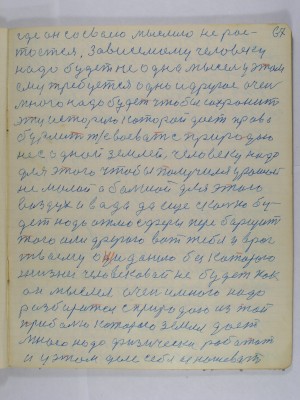 где он со своею мыслию не рос-
тается. Зависемому человеку
надо будет не одна мысел у этом
ему требуется одно и другое очен
много надо будет чтобы сохранит
эту историю которая дает право
бурлит т/к воеват с природою
не с одной землей, человеку надо
для этого чтобы получился урожай
не малой а болшой для этого
воздух и вада да еще скажю бу-
дет надо атмосфера перебариват
того или другого вот тебя и враг
твоему ожиданию без которого
жизней человеческой не будет как
он мыслел очен имного надо
разбиратся с природою из той
прибылю которого земля дает
много надо физически работат
и у этом деле себя